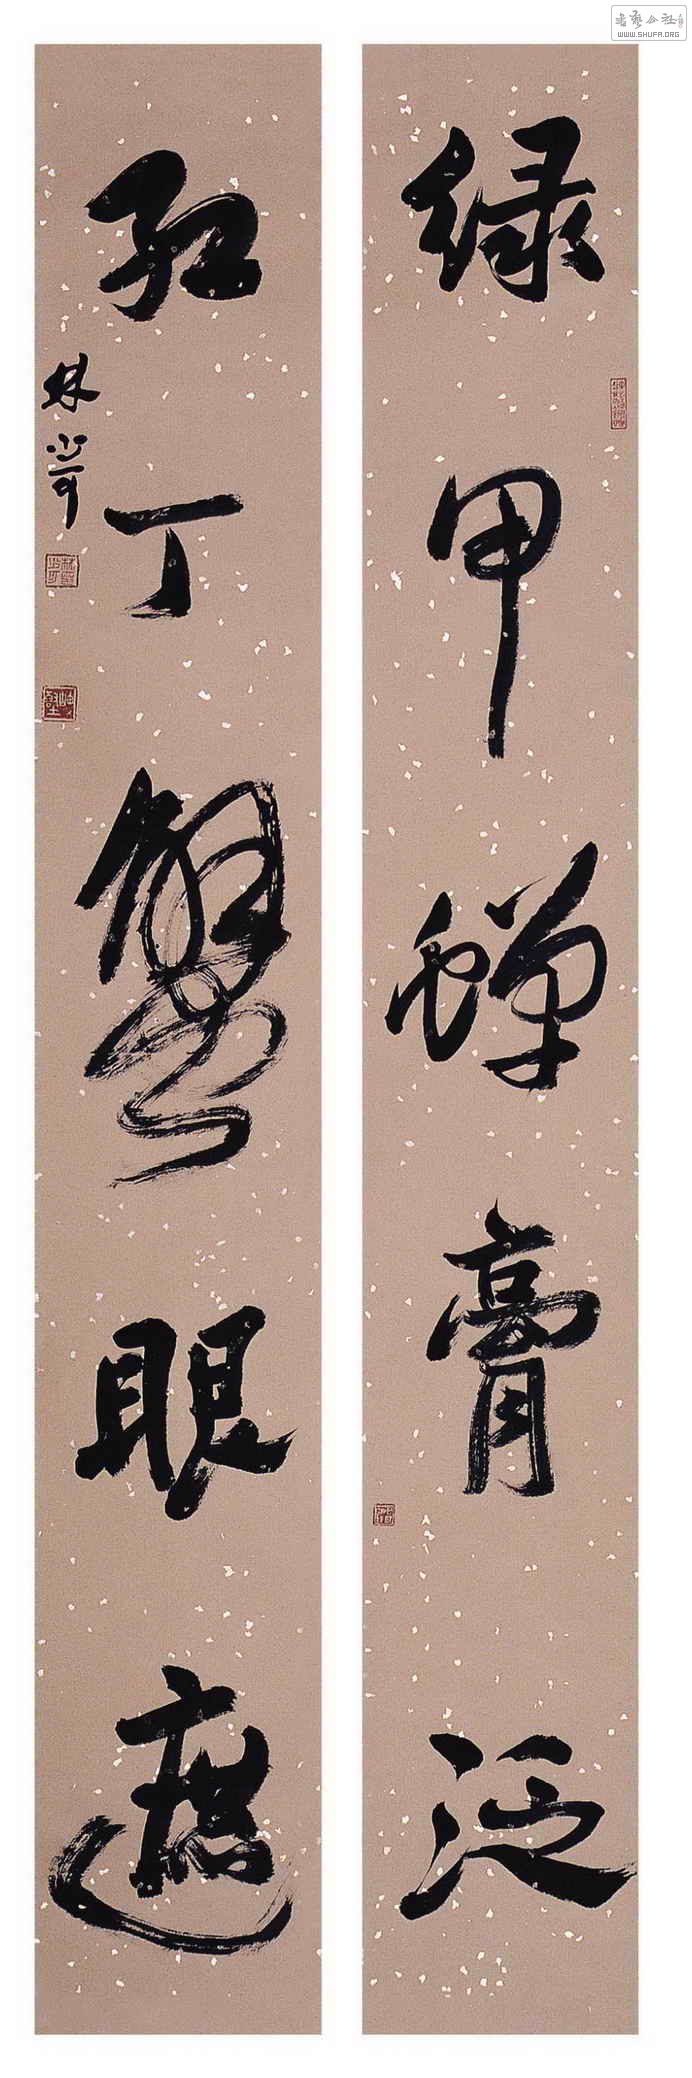 书艺公社
WWW.SHUFA.ORG
绿甲蝉膏泛
红丁蟹眼遮
林